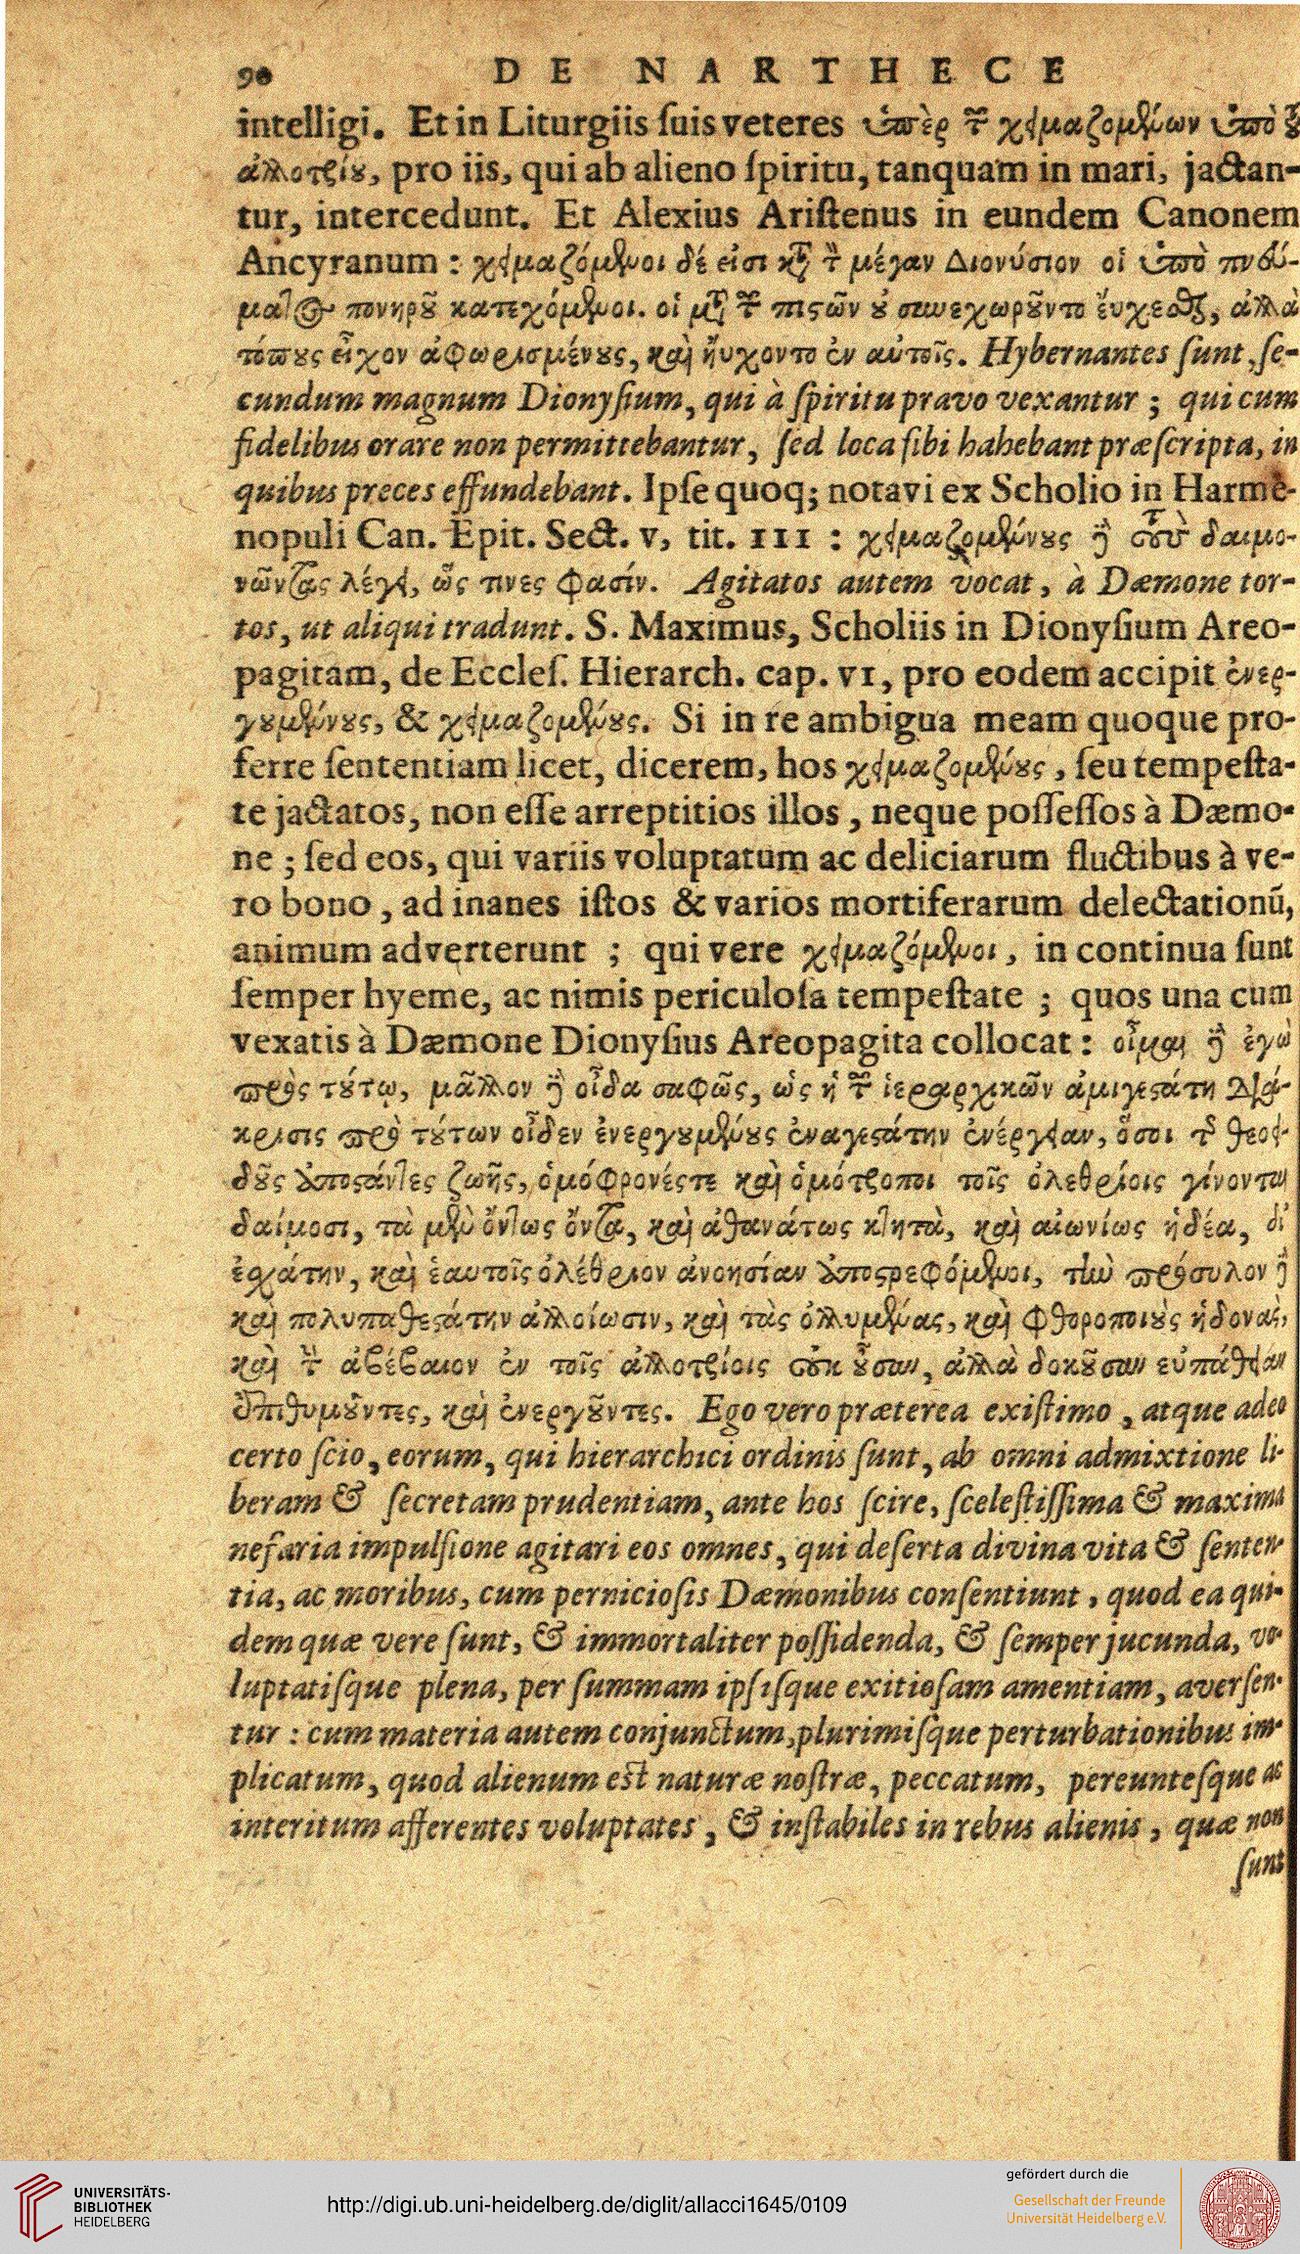 90 DE NARTHECE
intelligi. Et in Liturgiis ſuis veteres ὑπὲρ τῶν χειμαζομένων ὑπὸ τοῦ
ἀλλοτρίου, pro iis, qui ab alieno ſpiritu, tanquam in mari, jactan-
tur, intercedunt. Et Alexius Ariſtenus in eundem Canonem
Ancyranum : χειμαζόμενοι δέ εἰσι κατὰ τὸν μέγαν Διονύσιον οἱ ὑπὸ πνεύ-
ματος πονηροῦ κατεχόμενοι. οἱ μετὰ τῶν πιστῶν οὐ συνεχωροῦντο εὔχεσθαι, ἀλλὰ
τόπους εἶχον ἀφωρισμένους, καὶ ηὔχοντο ἐν αὐτοῖς. Hybernantes ſunt, ſe-
cundum magnum Dionyſium, qui à ſpiritu pravo vexantur ; qui cum
fidelibus orare non permittebantur, ſed loca ſibi hahebant præſcripta, in
quibus preces effundebant. Ipſe quoq; notavi ex Scholio in Harme-
nopuli Can. Epit. Sect. v, tit. III : χειμαζομένους δὲ τοὺς δαιμο-
νῶντας λέγει, ὥς τινες φασίν. Agitatos autem vocat, à Dæmone tor-
tos, ut aliqui tradunt. S. Maximus, Scholiis in Dionyſium Areo-
pagitam, de Eccleſ. Hierarch. cap. VI, pro eodem accipit ἐνερ-
γουμένους, & χειμαζομένους. Si in re ambigua meam quoque pro-
ferre ſententiam licet, dicerem, hos χειμαζομένους, ſeu tempeſta-
te jactatos, non eſſe arreptitios illos, neque poſſeſſos à Dæmo-
ne ; ſed eos, qui variis voluptatum ac deliciarum fluctibus à ve-
ro bono, ad inanes iſtos & varios mortiferarum delectationũ,
animum adverterunt ; qui vere χειμαζόμενοι, in continua ſunt
ſemper hyeme, ac nimis periculoſa tempeſtate ; quos una cum
vexatis à Dæmone Dionyſius Areopagita collocat : οἶμαι δὲ ἐγὼ
πρὸς τούτῳ, μᾶλλον δὲ οἶδα σαφῶς, ὡς ἡ τῶν ἱεραρχικῶν ἀμιγεστάτη διά-
κρισις πρὸ τούτων οἶδεν ἐνεργουμένους ἐναγεστάτην ἐνέργειαν, ὅσοι τῆς θεοει-
δοῦς ἀποστάντες ζωῆς, ὁμόφρονές τε καὶ ὁμότροποι τοῖς ὀλεθρίοις γίνονται
δαίμοσι, τὰ μὲν ὄντως ὄντα, καὶ ἀθανάτως κτητὰ, καὶ αἰωνίως ἡδέα, δι'
ἐσχάτην, καὶ ἑαυτοῖς ὀλέθριον ἀνοησίαν ἀποστρεφόμενοι, τὴν πρόσυλον δὲ
καὶ πολυπαθεστάτην ἀλλοίωσιν, καὶ τὰς ὀλλυμένας, καὶ φθοροποιοὺς ἡδονὰς,
καὶ τὴν ἀβέβαιον ἐν τοῖς ἀλλοτρίοις οὐκ οὖσαν, ἀλλὰ δοκοῦσαν εὐπάθειαν
ἐπιθυμοῦντες, καὶ ἐνεργοῦντες. Ego vero præterea exiſtimo, atque adeo
certo ſcio, eorum, qui hierarchici ordinis ſunt, ab omni admixtione li-
beram & ſecretam prudentiam, ante hos ſcire, ſceleſtiſſima & maxima
nefaria impulſione agitari eos omnes, qui deſerta divina vita & ſenten-
tia, ac moribus, cum pernicioſis Dæmonibus conſentiunt, quod ea qui-
dem quæ vere ſunt, & immortaliter poſſidenda, & ſemper jucunda, vo-
luptatiſque plena, per ſummam ipſiſque exitioſam amentiam, averſen-
tur : cum materia autem conjunctum, plurimiſque perturbationibus im-
plicatum, quod alienum eſt naturæ noſtræ, peccatum, pereunteſque ac
interitum afferentes voluptates, & inſtabiles in rebus alienis, quæ non
ſunt
UNIVERSITÄTS-
BIBLIOTHEK
HEIDELBERG
http://digi.ub.uni-heidelberg.de/diglit/allacci1645/0109
gefördert durch die
Gesellschaft der Freunde
Universität Heidelberg e.V.